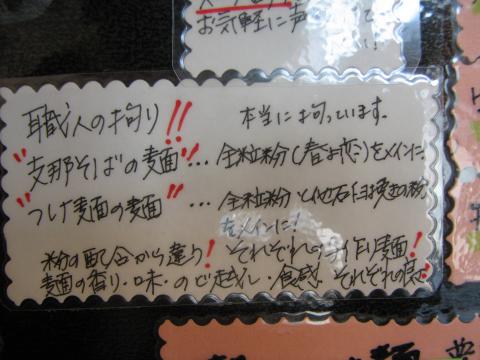 お気軽に声
職人の拘り!! 本当に拘っています。
"支那そばの麺"… 全粒粉(春よ恋)をメインに
"つけ麺の麺" … 全粒粉と他石臼挽きの粉
をメインに!
粉の配合から違う! それぞれの手作り麺!
麺の香り・味・のど越し・食感・それぞれの